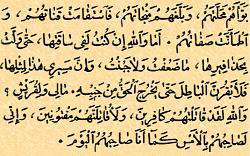 وَّأَهُمْ مَحَلَّتَهُمْ، وَبَلَّغَهُمْ مَنْجَاتَهُمْ، فَاسْتَقَامَتْ قَنَاتُهُمْ، وَ
اطْمَأَنَّتْ صَفَاتُهُمْ. أَمَا وَاللهِ إِنْ كُنْتُ لَفِي سَاقَتِهَا، حَتَّى وَلَّتْ
بِحَذَافِيرِهَا، مَا ضَعُفْتُ وَلَا جَبُنْتُ، وَإِنَّ مَسِيرِي هٰذَا لِمِثْلِهَا،
الْبَاطِلَ حَتَّى يَخْرُجَ الْحَقُّ مِنْ جَنْبِهِ. مَالِي وَلِقُرَيْشٍ؟
وَاللهِ لَقَدْ قَاتَلْتُهُمْ كَافِرِينَ، وَلَأُقَاتِلَنَّهُمْ مَفْتُونِينَ، وَإِنِّي
لَصَاحِبُهُمْ بِالْأَمْسِ كَمَا أَنَا صَاحِبُهُمُ الْيَوْمَ.